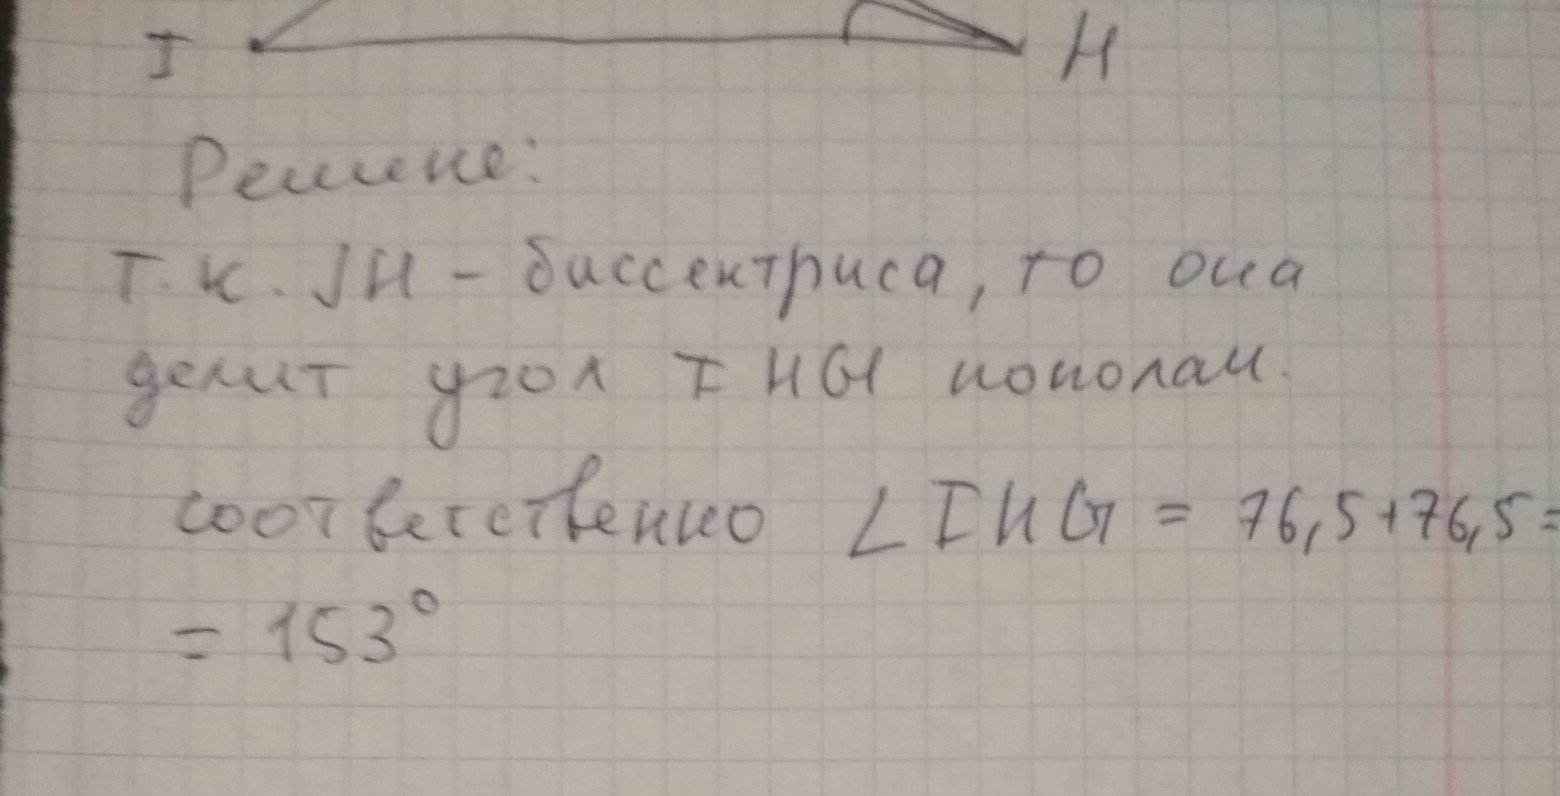 I H
Решене:
т.к. JH - биссектриса, то она
делит угол IHG пополам.
соответственно ∠IHG = 76,5+76,5=
= 153°